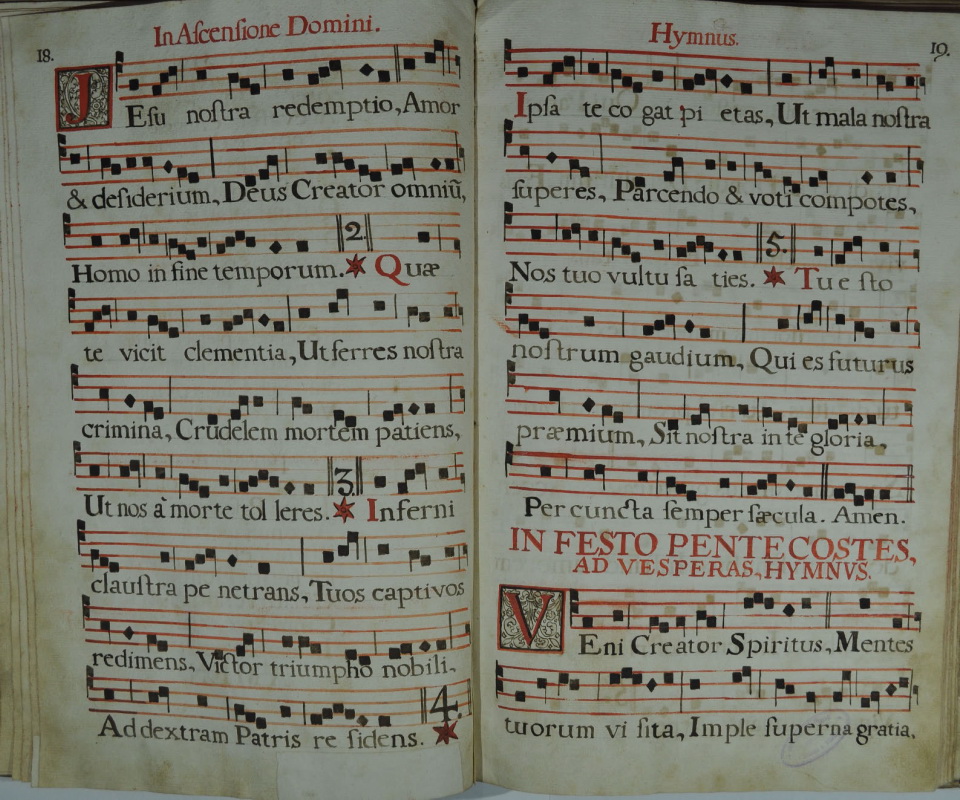 18.
In Ascensione Domini.
JEsu nostra redemptio, Amor
& desiderium, Deus Creator omniũ,
Homo in fine temporum. 2. Quæ
te vicit clementia, Ut ferres nostra
crimina, Crudelem mortem patiens,
Ut nos à morte tolleres. 3. Inferni
claustra penetrans, Tuos captivos
redimens, Victor triumpho nobili,
Ad dextram Patris residens. 4.
Hymnus.
19.
Ipsa te cogat pietas, Ut mala nostra
superes, Parcendo & voti compotes,
Nos tuo vultu saties. 5. Tu esto
nostrum gaudium, Qui es futurus
præmium, Sit nostra in te gloria,
Per cuncta semper sæcula. Amen.
IN FESTO PENTECOSTES,
AD VESPERAS, HYMNVS.
VEni Creator Spiritus, Mentes
tuorum visita, Imple superna gratia,